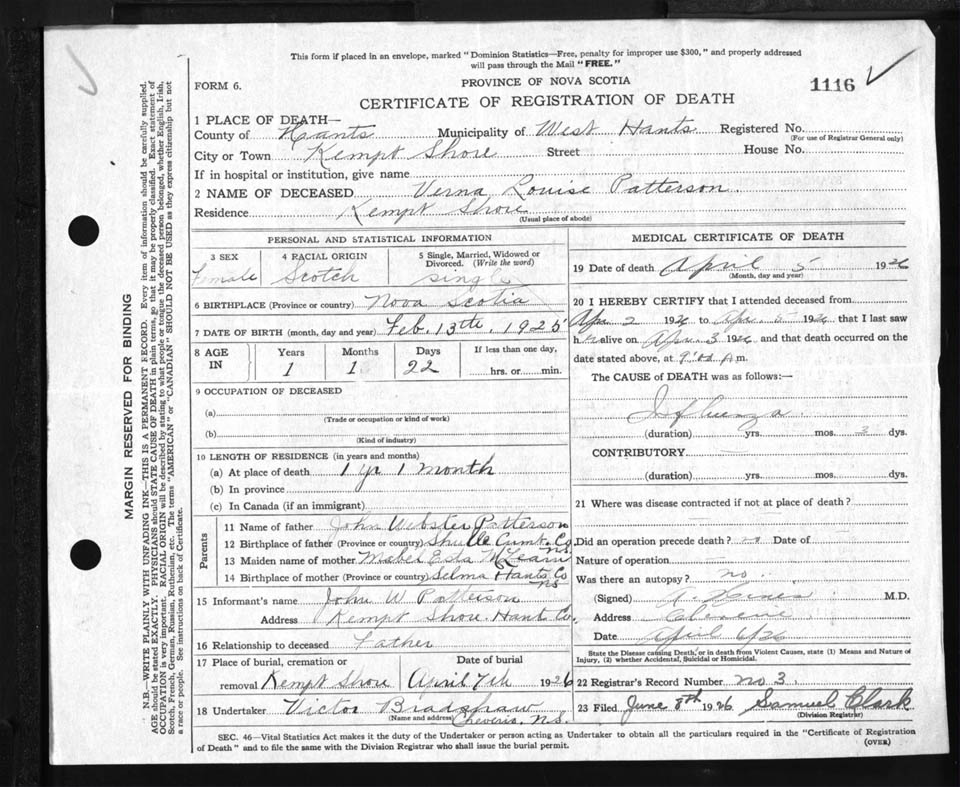 This form if placed in an envelope, marked "Dominion Statistics—Free, penalty for improper use $300," and properly addressed
will pass through the Mail "FREE."
FORM 6.
PROVINCE OF NOVA SCOTIA
1116
CERTIFICATE OF REGISTRATION OF DEATH
1 PLACE OF DEATH—
County of Hants Municipality of West Hants Registered No.
(For use of Registrar General only)
City or Town Kempt Shore Street House No.
If in hospital or institution, give name
2 NAME OF DECEASED Verna Louise Patterson.
Residence Kempt Shore
(Usual place of abode)
PERSONAL AND STATISTICAL INFORMATION
3 SEX 4 RACIAL ORIGIN 5 Single, Married, Widowed or
Divorced. (Write the word)
Female Scotch single
6 BIRTHPLACE (Province or country) Nova Scotia
7 DATE OF BIRTH (month, day and year) Feb. 13th, 1925
8 AGE IN Years Months Days If less than one day,
1 1 22 hrs. or min.
9 OCCUPATION OF DECEASED
(a)
(Trade or occupation or kind of work)
(b)
(Kind of industry)
10 LENGTH OF RESIDENCE (in years and months)
(a) At place of death 1 yr 1 month
(b) In province
(c) In Canada (if an immigrant)
Parents
11 Name of father John Webster Patterson
12 Birthplace of father (Province or country) Shulie Cumb. Co. N.S.
13 Maiden name of mother Mabel Eda McLearn
14 Birthplace of mother (Province or country) Selma Hants Co NS
15 Informant's name John W Patterson
Address Kempt Shore. Hant Co.
16 Relationship to deceased Father
17 Place of burial, cremation or Date of burial
removal Kempt Shore April 7th 1926
18 Undertaker Victor Bradshaw
(Name and address) Cheverie, N.S.
MEDICAL CERTIFICATE OF DEATH
19 Date of death April 5 1926
(Month, day and year)
20 I HEREBY CERTIFY that I attended deceased from
Apr 2 1926 to Apr. 5 1926 that I last saw
h alive on Apr. 3 1926 and that death occurred on the
date stated above, at m.
The CAUSE of DEATH was as follows:—
Influenza
(duration) yrs. mos. 3 dys.
CONTRIBUTORY
(duration) yrs. mos. dys.
21 Where was disease contracted if not at place of death?
Did an operation precede death? no Date of
Nature of operation
Was there an autopsy? no.
(Signed) M.D.
Address Cheverie
Date April 6/26
State the Disease causing Death, or in death from Violent Causes, state (1) Means and Nature of
Injury, (2) whether Accidental, Suicidal or Homicidal.
22 Registrar's Record Number no 3.
23 Filed June 8th 1926. Samuel Clark
(Division Registrar)
SEC. 46—Vital Statistics Act makes it the duty of the Undertaker or person acting as Undertaker to obtain all the particulars required in the "Certificate of Registration
of Death" and to file the same with the Division Registrar who shall issue the burial permit.
(OVER)
MARGIN RESERVED FOR BINDING
N.B.—WRITE PLAINLY WITH UNFADING INK—THIS IS A PERMANENT RECORD. Every item of information should be carefully supplied.
AGE should be stated EXACTLY. PHYSICIANS should STATE CAUSE OF DEATH in plain terms, so that it may be properly classified. Exact statement of
OCCUPATION is very important. RACIAL ORIGIN will be described by stating to what people or tongue the deceased person belonged, whether English, Irish,
Scotch, French, German, Russian, Ruthenian, etc. The terms "AMERICAN" or "CANADIAN" SHOULD NOT BE USED as they express citizenship but not
a race or people. See instructions on back of Certificate.